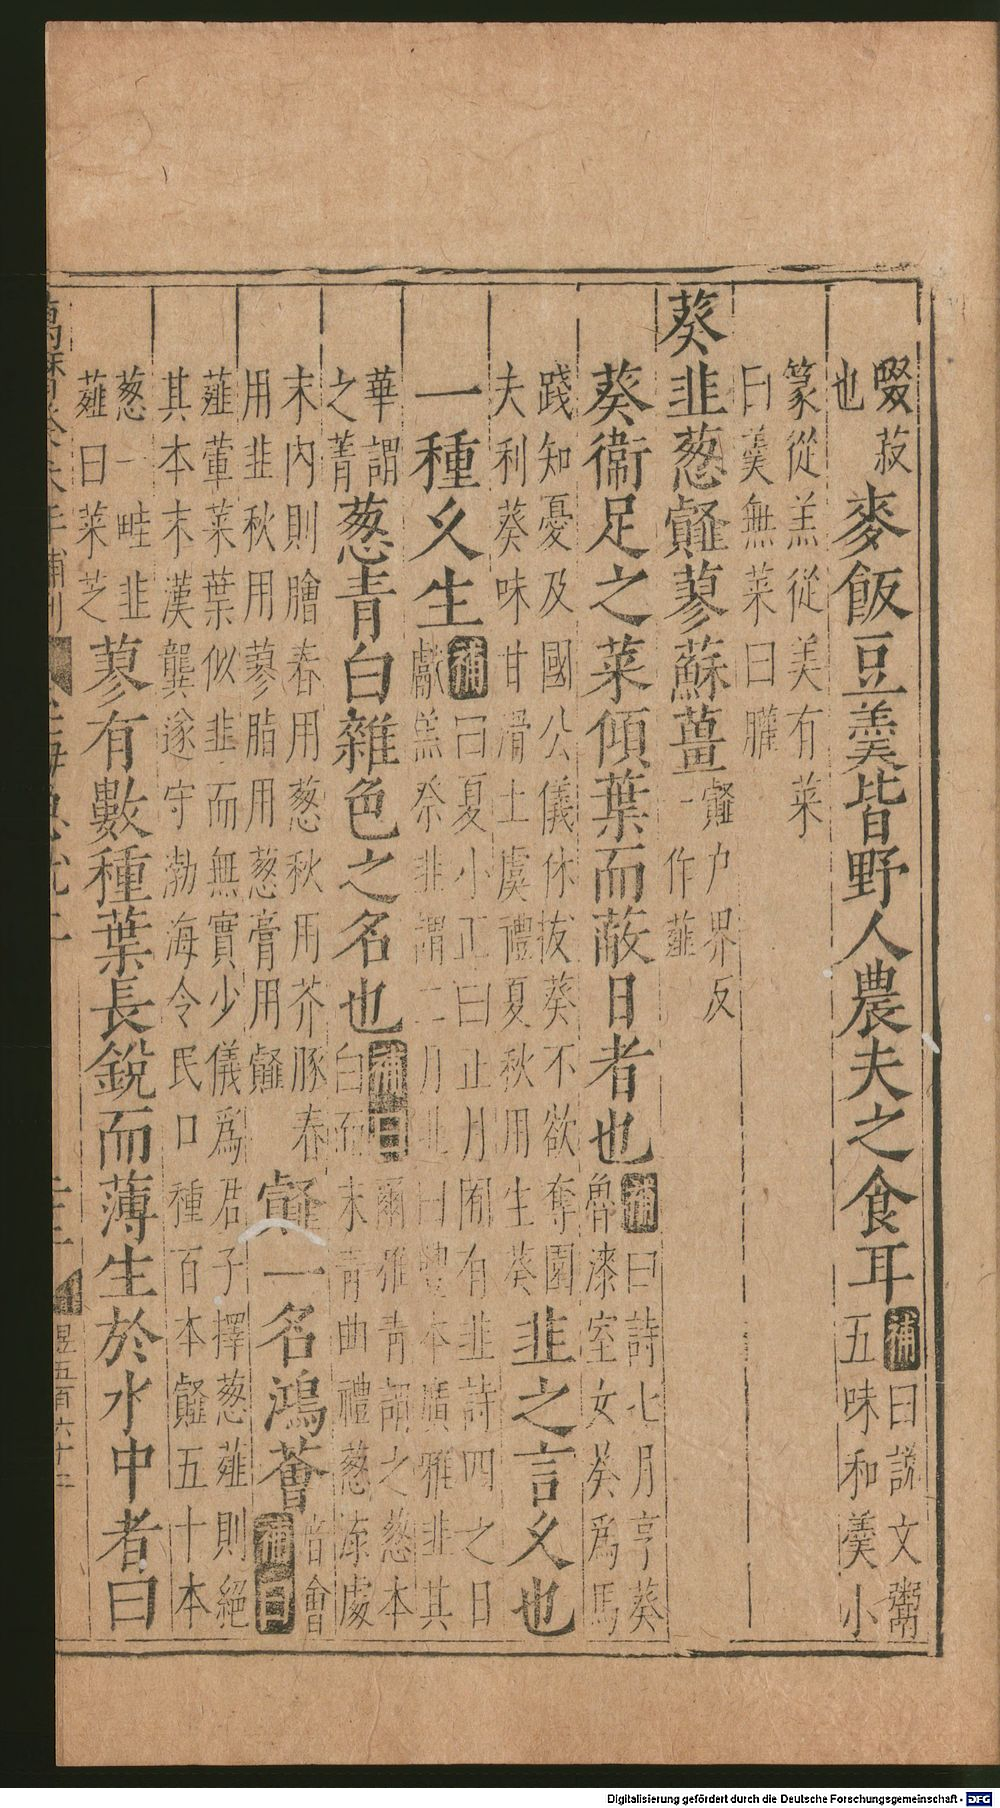 啜菽
也
麥飯豆羹皆野人農夫之食耳
補曰說文䰞
五味和羹小
篆從羔從美有菜
曰羹無菜曰臛
葵韭葱䪥蓼蘇薑
䪥户界反
一作薤
葵衞足之菜傾葉而蔽日者也
補曰詩七月亨葵
魯漆室女葵爲馬
踐知憂及國公儀休拔葵不欲奪園
夫利葵味甘滑土虞禮夏秋用生葵
韭之言久也
一種久生
補曰夏小正曰正月囿有韭詩四之日
獻羔祭韭謂二月韭曰豐本廣雅韭其
華謂
之菁
葱青白雜色之名也
補曰爾雅青謂之葱本
白而末青曲禮葱渫處
末內則膾春用葱秋用芥豚春
用韭秋用蓼脂用葱膏用䪥
䪥一名鴻薈
補曰音會
薤葷菜葉似韭而無實少儀爲君子擇葱薤則絕
其本末漢龔遂守渤海令民口種百本䪥五十本
葱一畦韭
薤曰菜芝
蓼有數種葉長銳而薄生於水中者曰
Digitalisierung gefördert durch die Deutsche Forschungsgemeinschaft - DFG